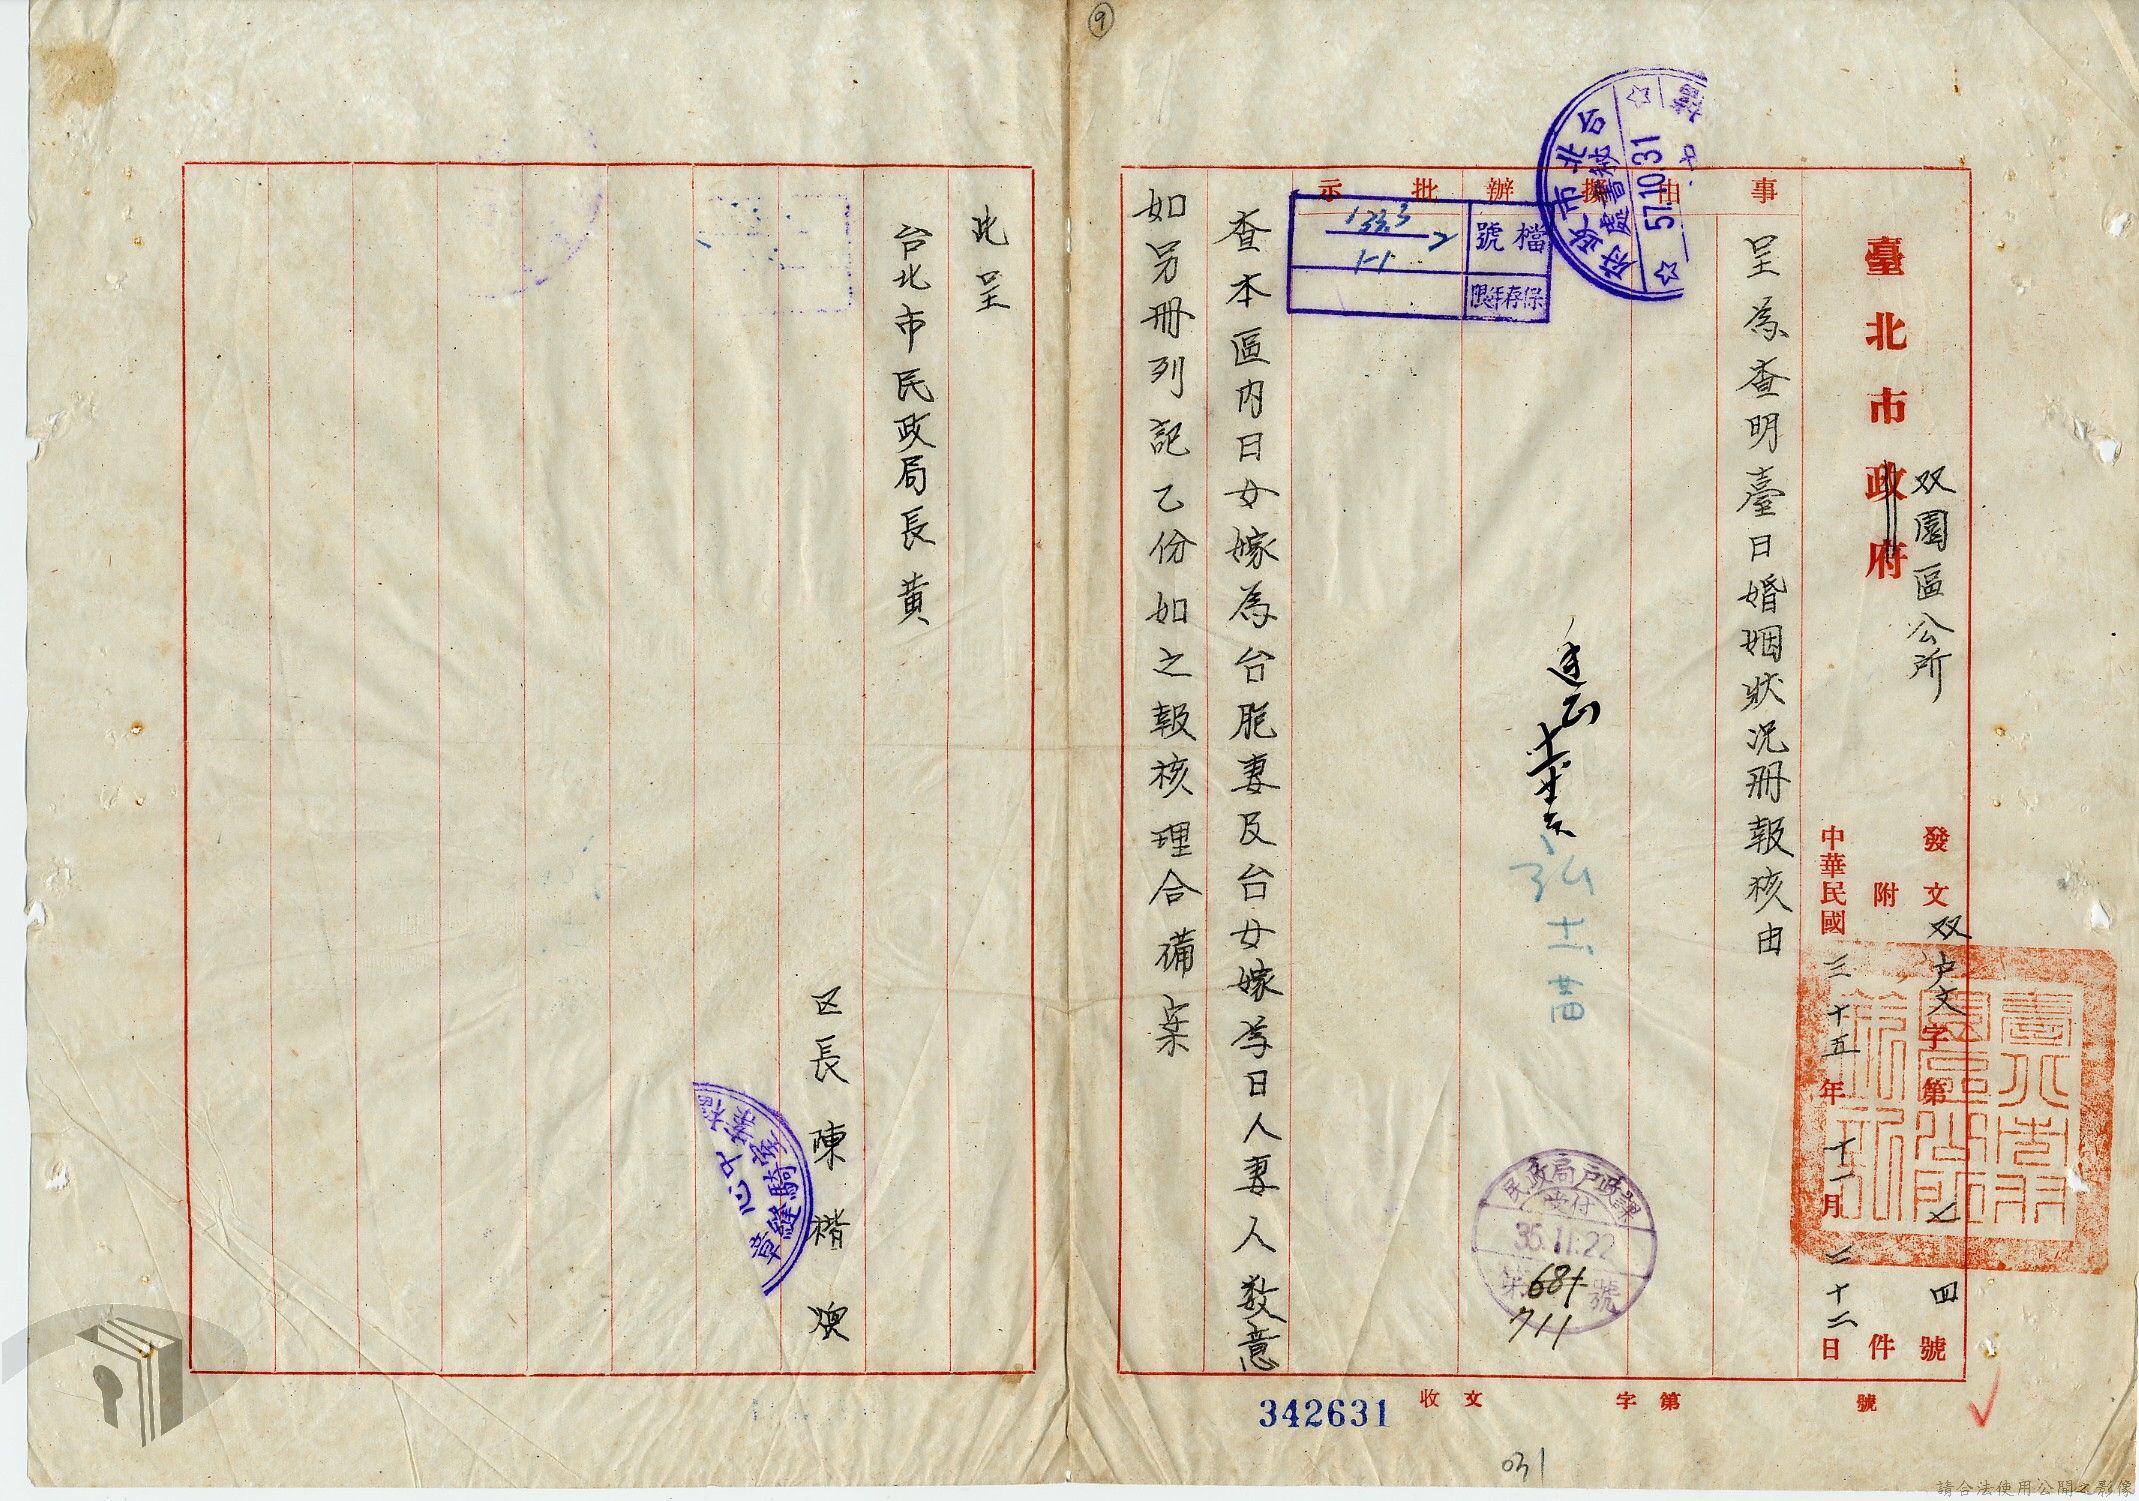 ⑨
臺北市政府
双園區公所
發文双戶文字第七四號
附件
中華民國三十五年十一月二十二日
事由
擬辦
批示
呈為查明臺日婚姻狀況冊報核由
台北市政府
秘書處
57.10.31
檔號
133.3
1-1
2
保存年限
民政局戶政課
收付
35.11.22
第681號
711
查本區內日女嫁為台胞妻及台女嫁為日人妻人數意
如另冊列記乙份如之報核理合備案
此呈
台北市民政局長黃
区長陳楷煥
檔案中心
騎縫章
收文字第號
342631
031
請合法使用公開之影像